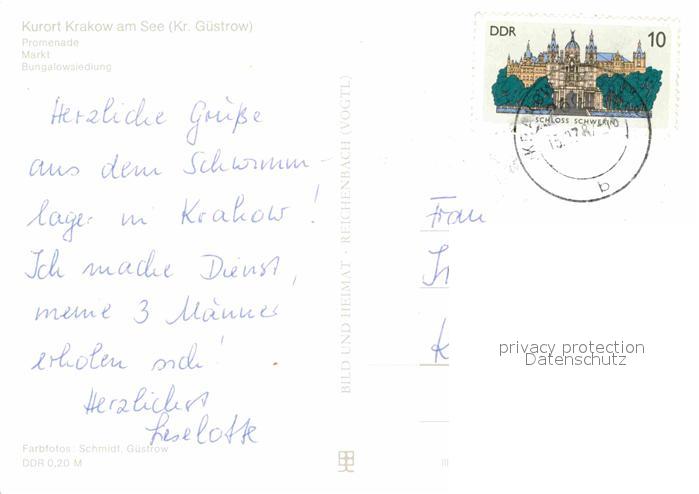 Kurort Krakow am See (Kr. Güstrow)
Promenade
Markt
Bungalowsiedlung
Herzliche Grüße
aus dem Schwimm-
lager in Krakow!
Ich mache Dienst,
meine 3 Männer
erholen sich!
Herzlichst
Liselotte
Farbfotos: Schmidt, Güstrow
DDR 0,20 M
BILD UND HEIMAT · REICHENBACH (VOGTL)
DDR
10
SCHLOSS SCHWERIN
b
Frau
K
privacy protection
Datenschutz
III